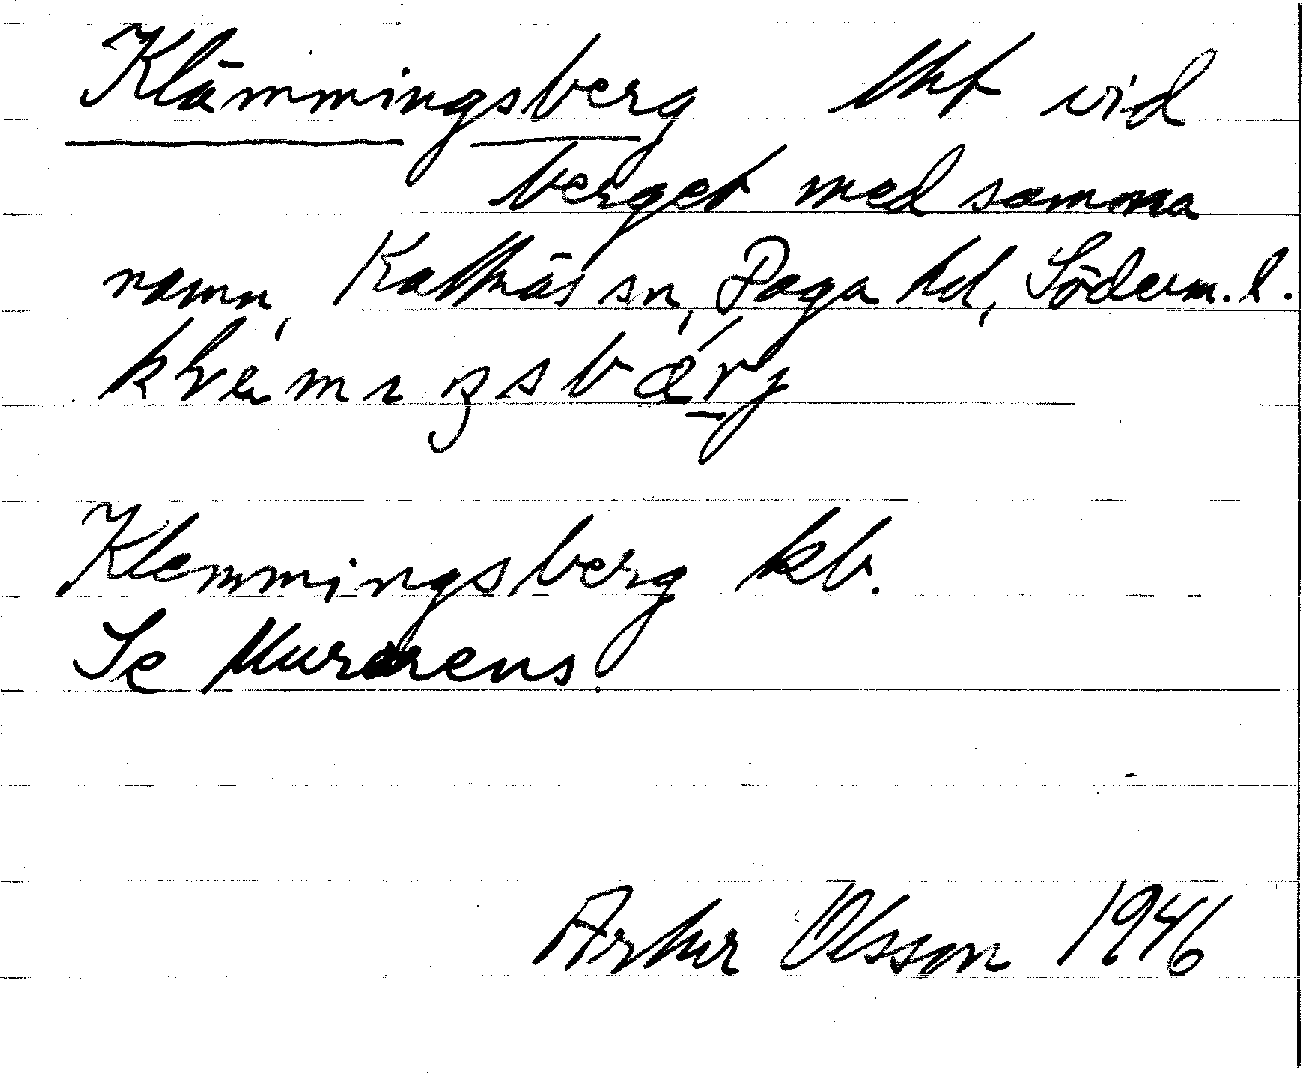 Klämmingsberg lht vid
berget med samma
namn, Kattnäs sn, Daga hd, Söderm. l.
Klemmingsberg kb.
Se Murarens.
Artur Olsson 1946